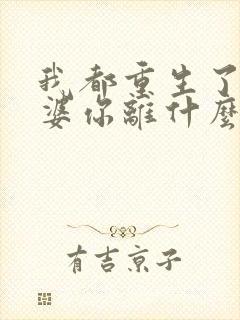 我都重生了
婆你離什麼
有吉京子